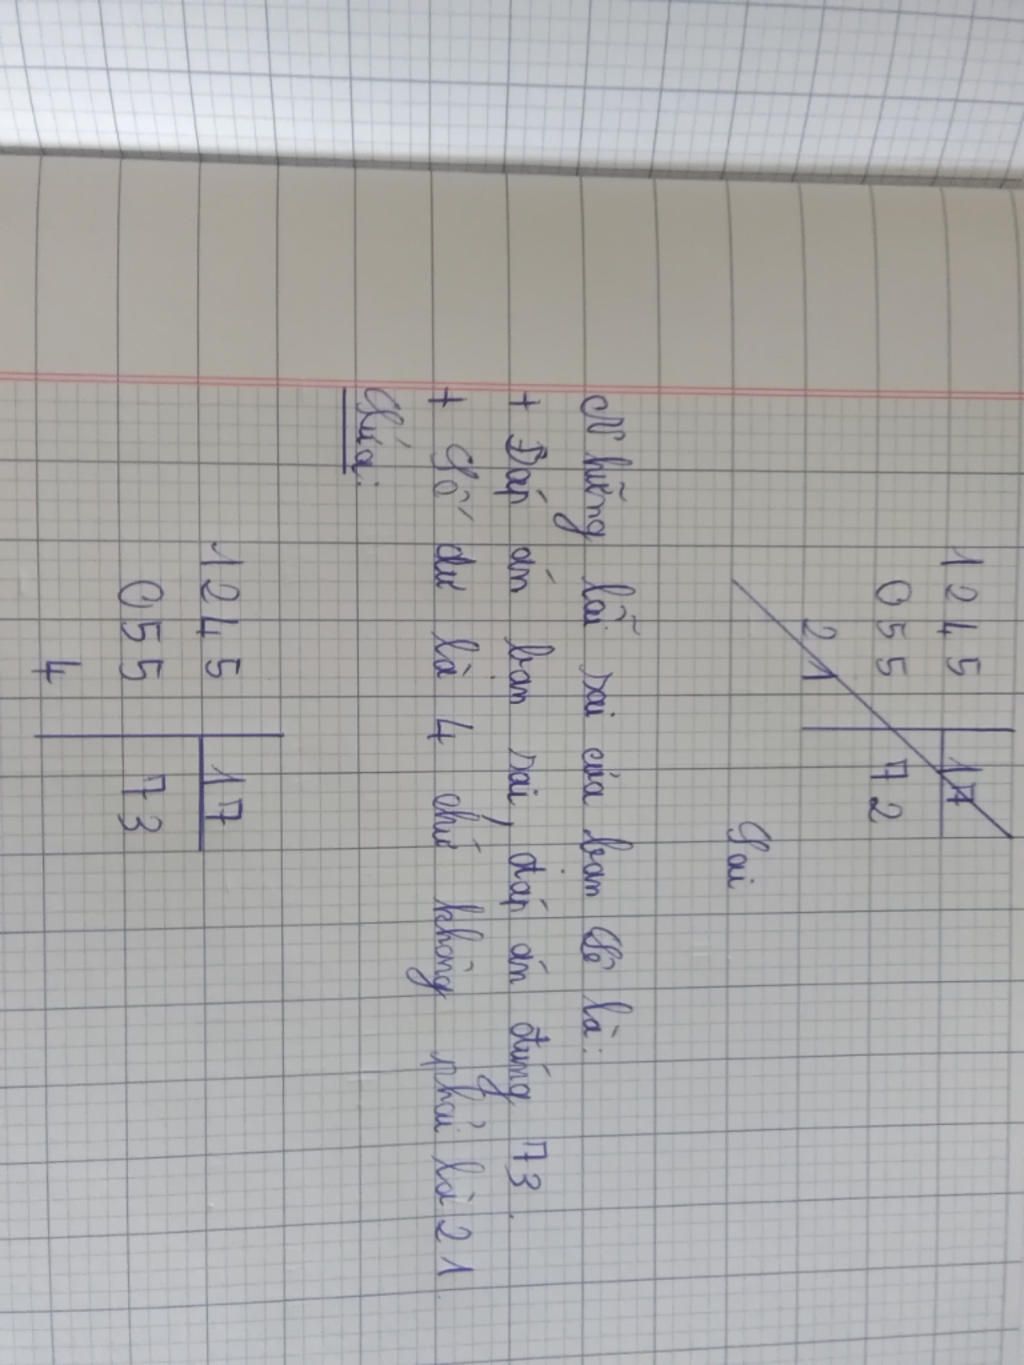 1245 17
055 72
21
Sai
Những lỗi sai của bạn Sê là:
+ Đáp án bạn sai, đáp án đúng 73.
+ Số dư là 4 chứ không phải là 21
Sửa:
1245 17
055 73
4